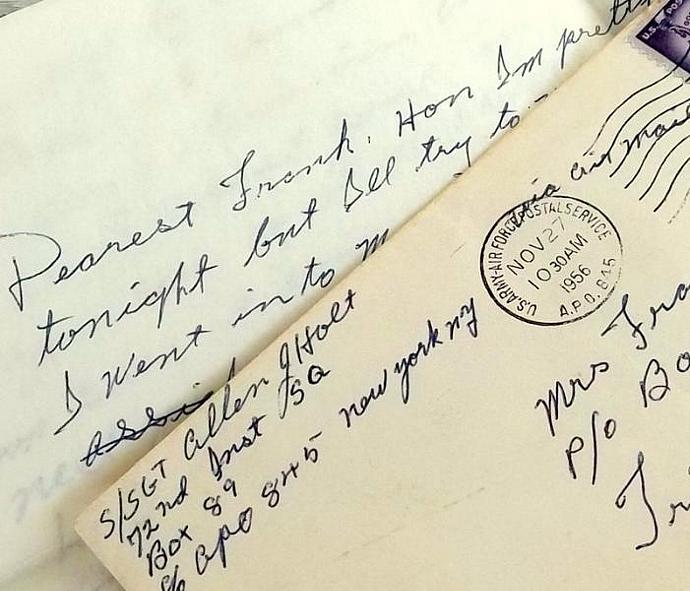 Dearest Frank. Hon Im pretty
tonight but Ill try to
I went in to
U.S. POS
via air mail
U.S. ARMY-AIR FORCE POSTAL SERVICE
NOV 27
10 30 AM
1956
A.P.O. 845
S/SGT Allen J Holt
72nd Inst SQ
Box 89
% apo 845 new york ny
Mrs Fra
P/O Bo